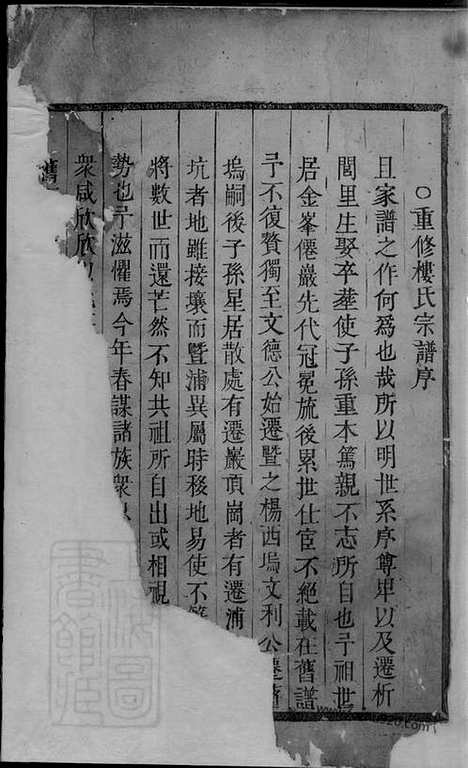 ○重修樓氏宗譜序
且家譜之作何為也哉所以明世系序尊卑以及遷析
閭里生娶卒塟使子孫重本篤親不忘所自也予祖世
居金峯僊巖先代冠冕旒後累世仕宦不絕載在舊譜
予不復贅獨至文德公始遷暨之楊西塢文利公遷
塢嗣後子孫星居散處有遷巖頂崗者有遷浦
坑者地雖接壤而暨浦異屬時移地易使不
將數世而還芒然不知共祖所自出或相視
勢也予滋懼焉今年春謀諸族衆
衆咸欣欣
舊